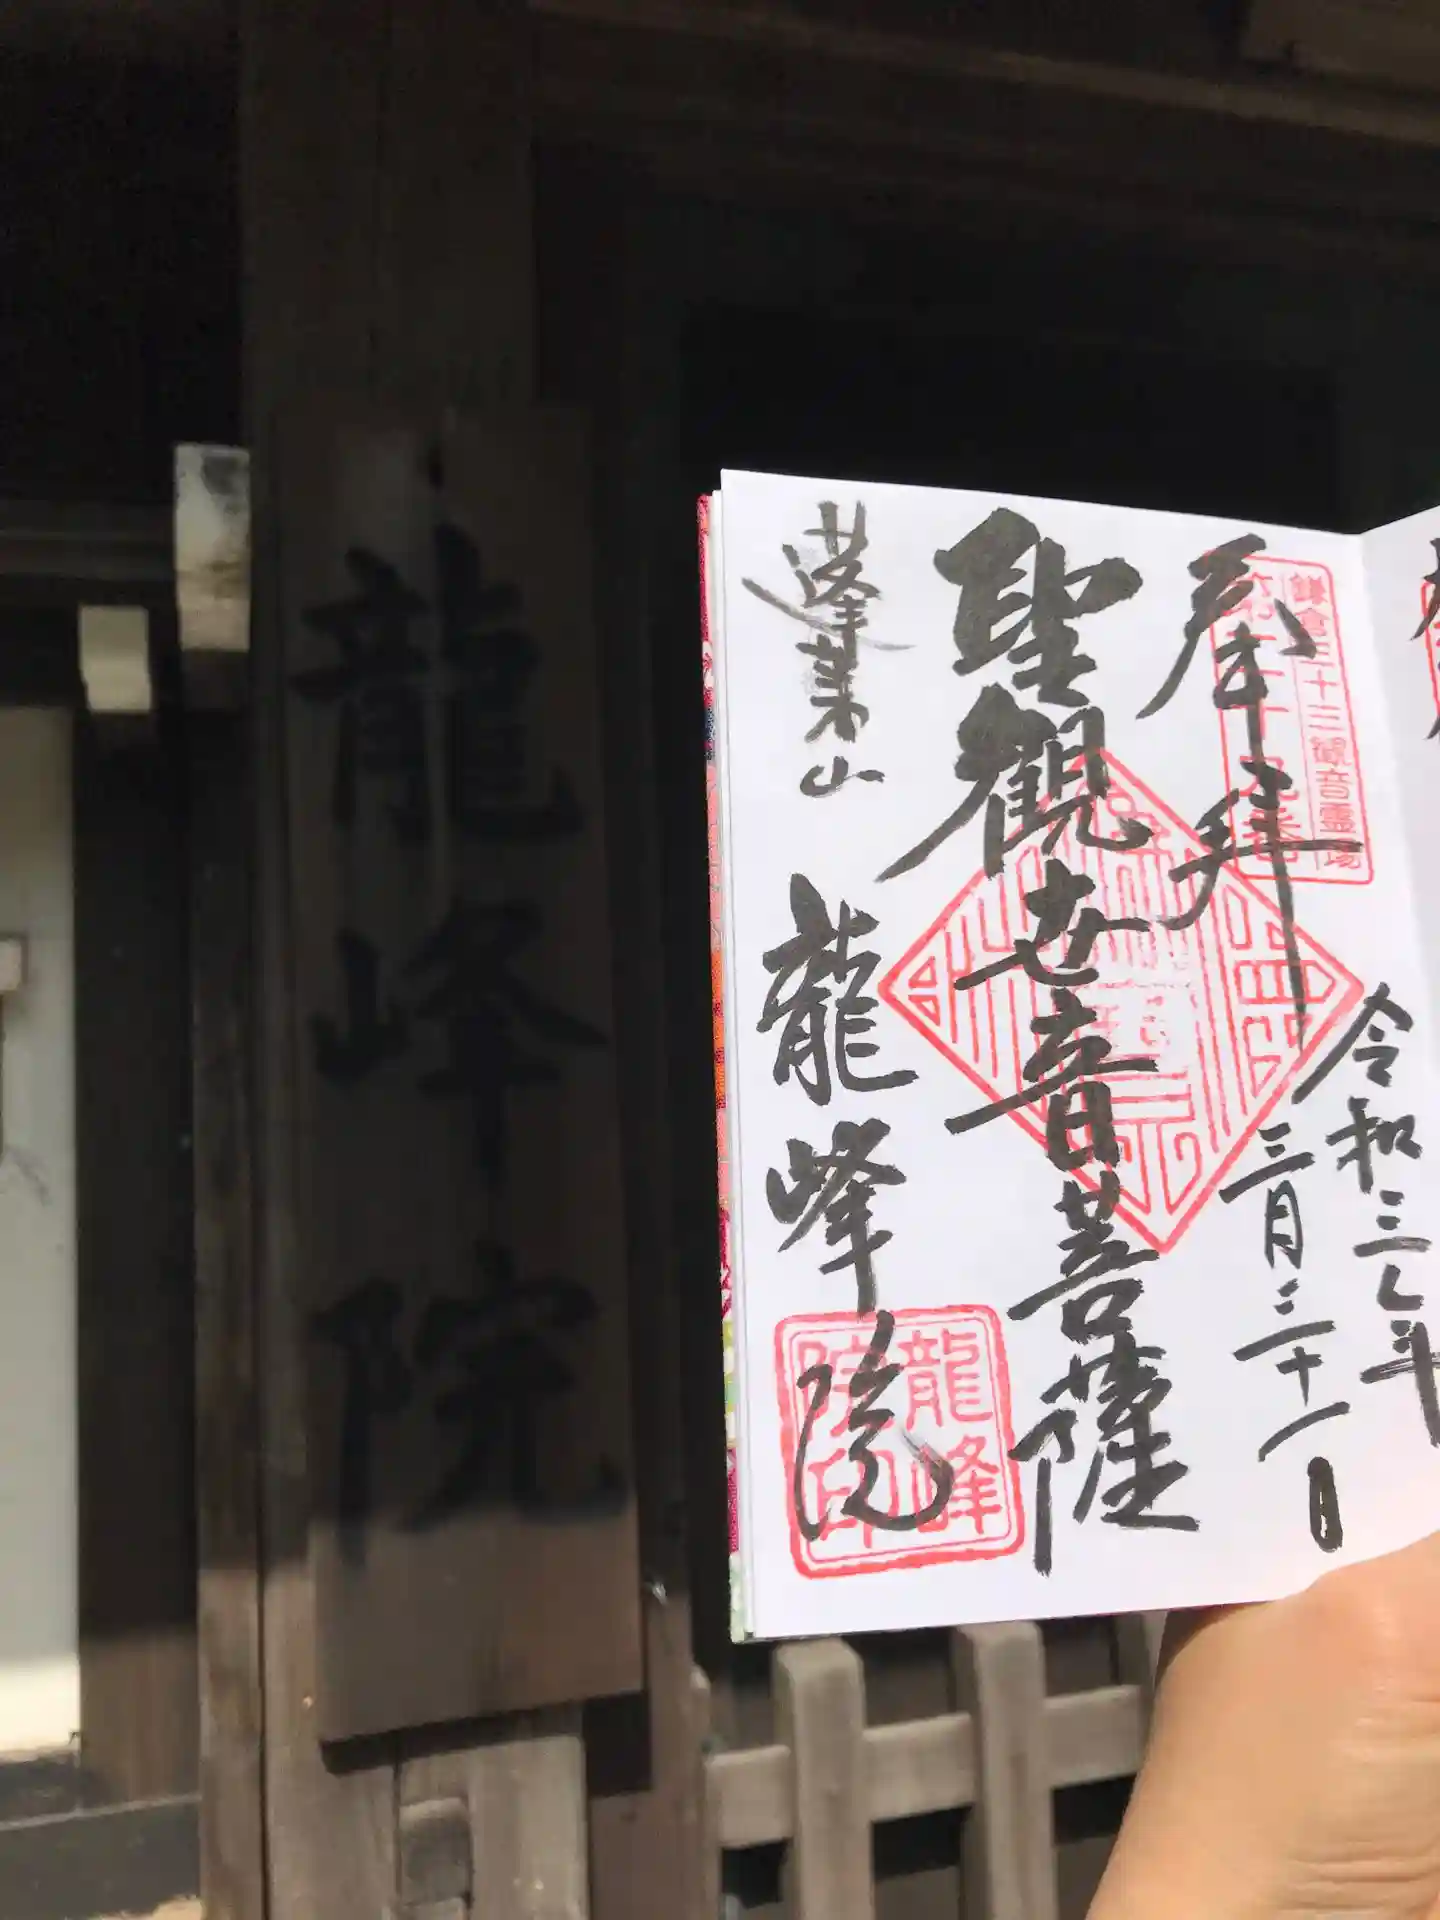 龍峰院
奉拝
鎌倉三十三観音霊場
第二十九番
令和三年
三月二十一日
聖観世音菩薩
蓬莱山
龍峰院
龍峰
院印